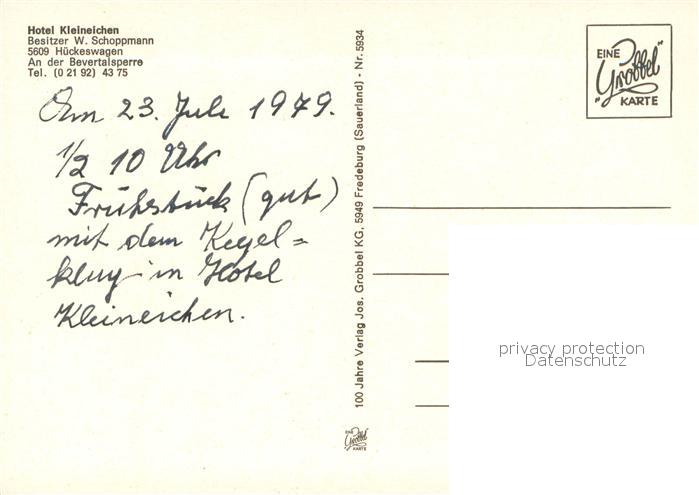 Hotel Kleineichen
Besitzer W. Schoppmann
5609 Hückeswagen
An der Bevertalsperre
Tel. (0 21 92) 43 75
Am 23. Juli 1979.
1/2 10 Uhr
Frühstück (gut)
mit dem Kegel=
klug in Hotel
Kleineichen.
100 Jahre Verlag Jos. Grobbel KG, 5949 Fredeburg (Sauerland) - Nr. 5934
EINE
"Grobbel"
KARTE
privacy protection
Datenschutz
EINE
Grobbel
KARTE